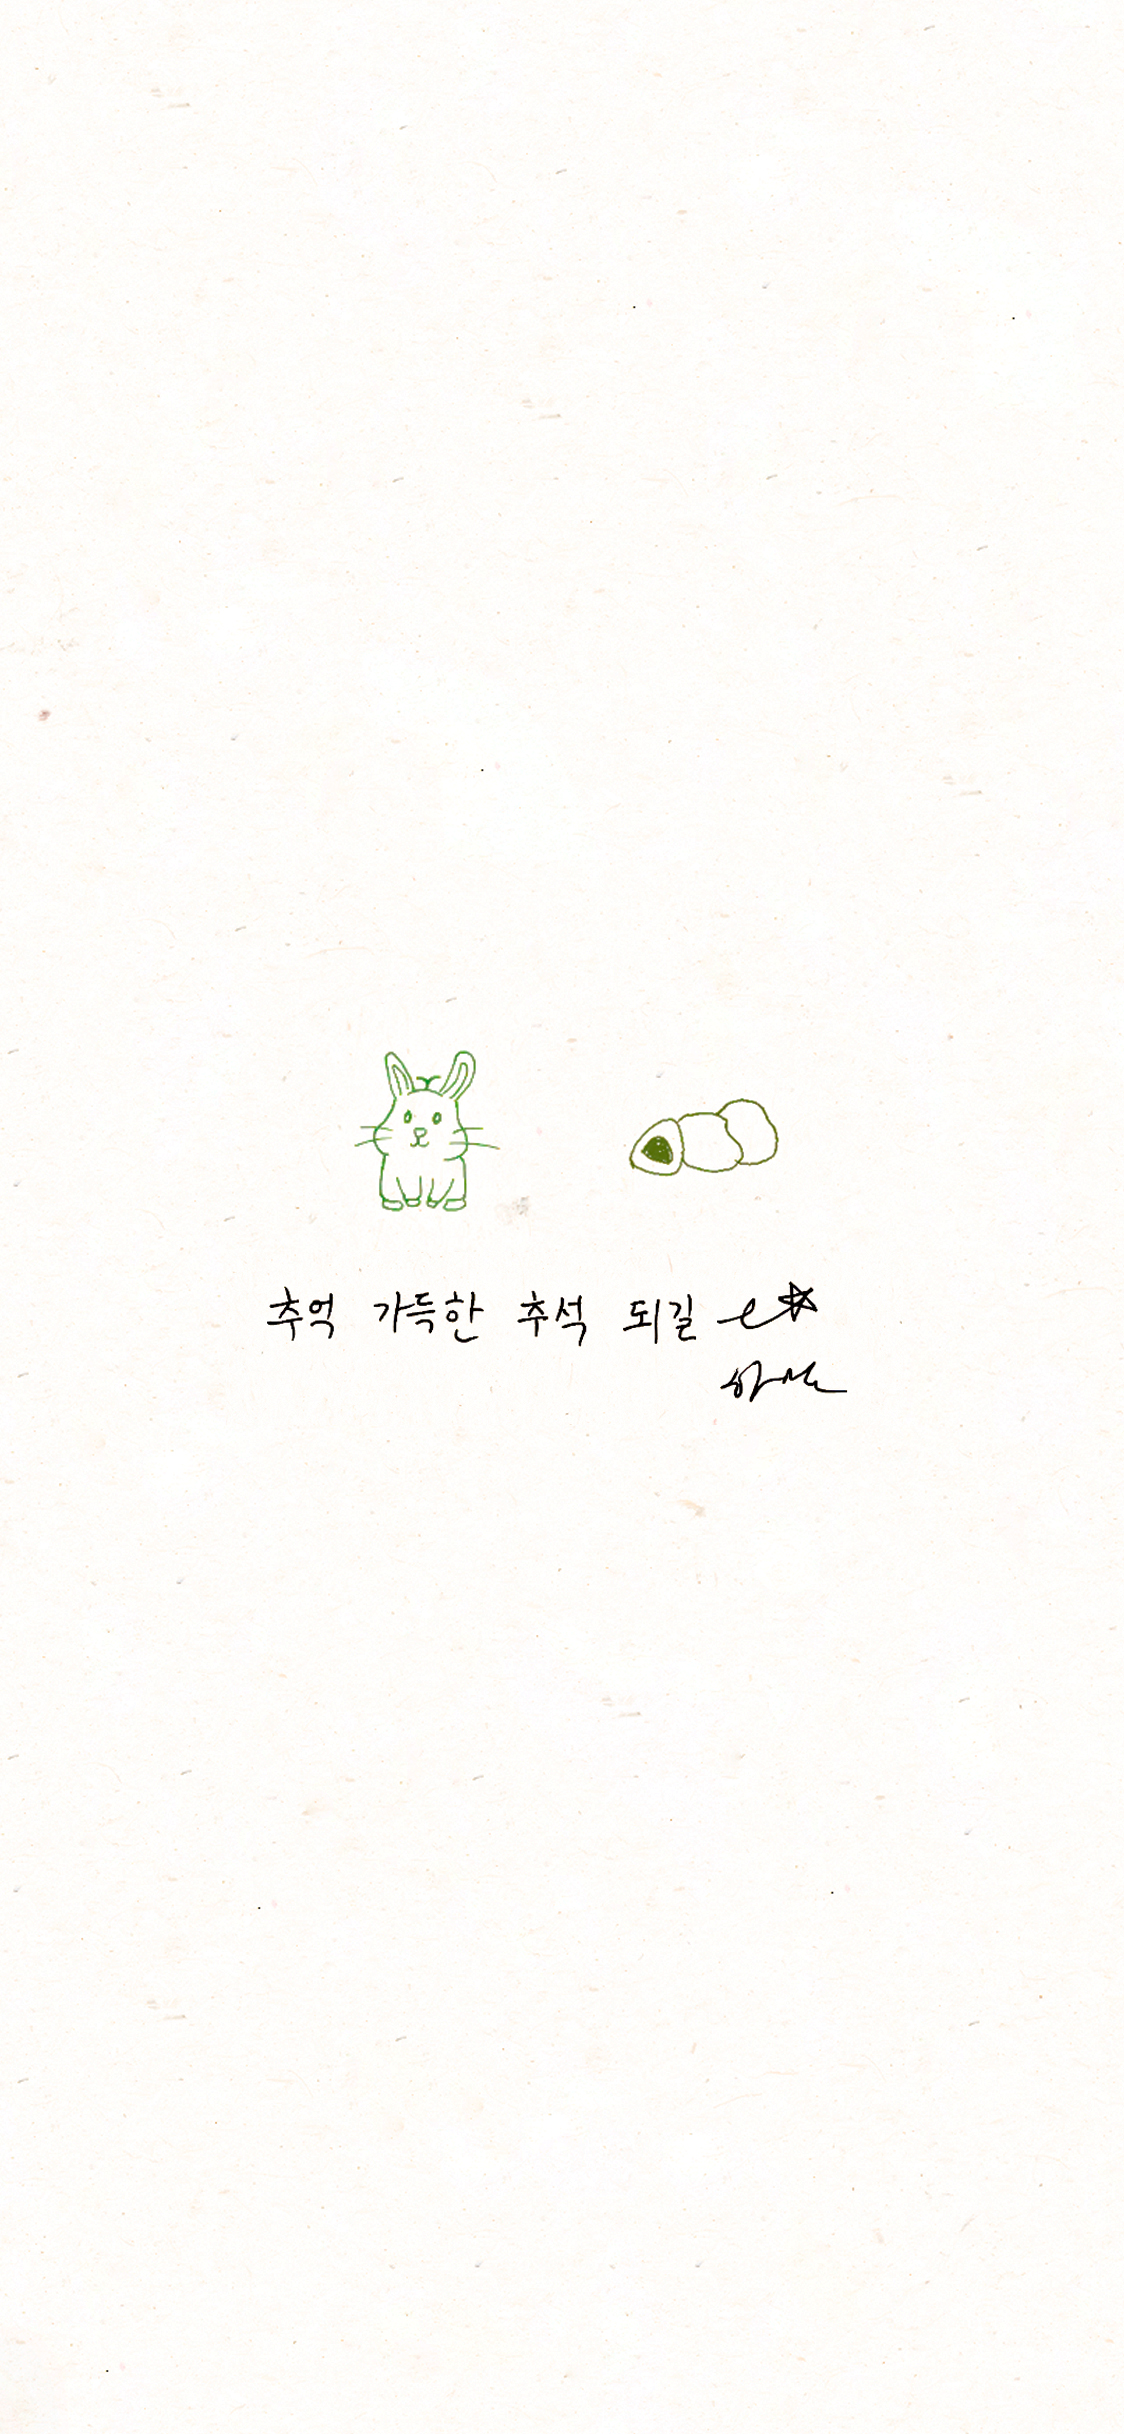 추억 가득한 추석 되길